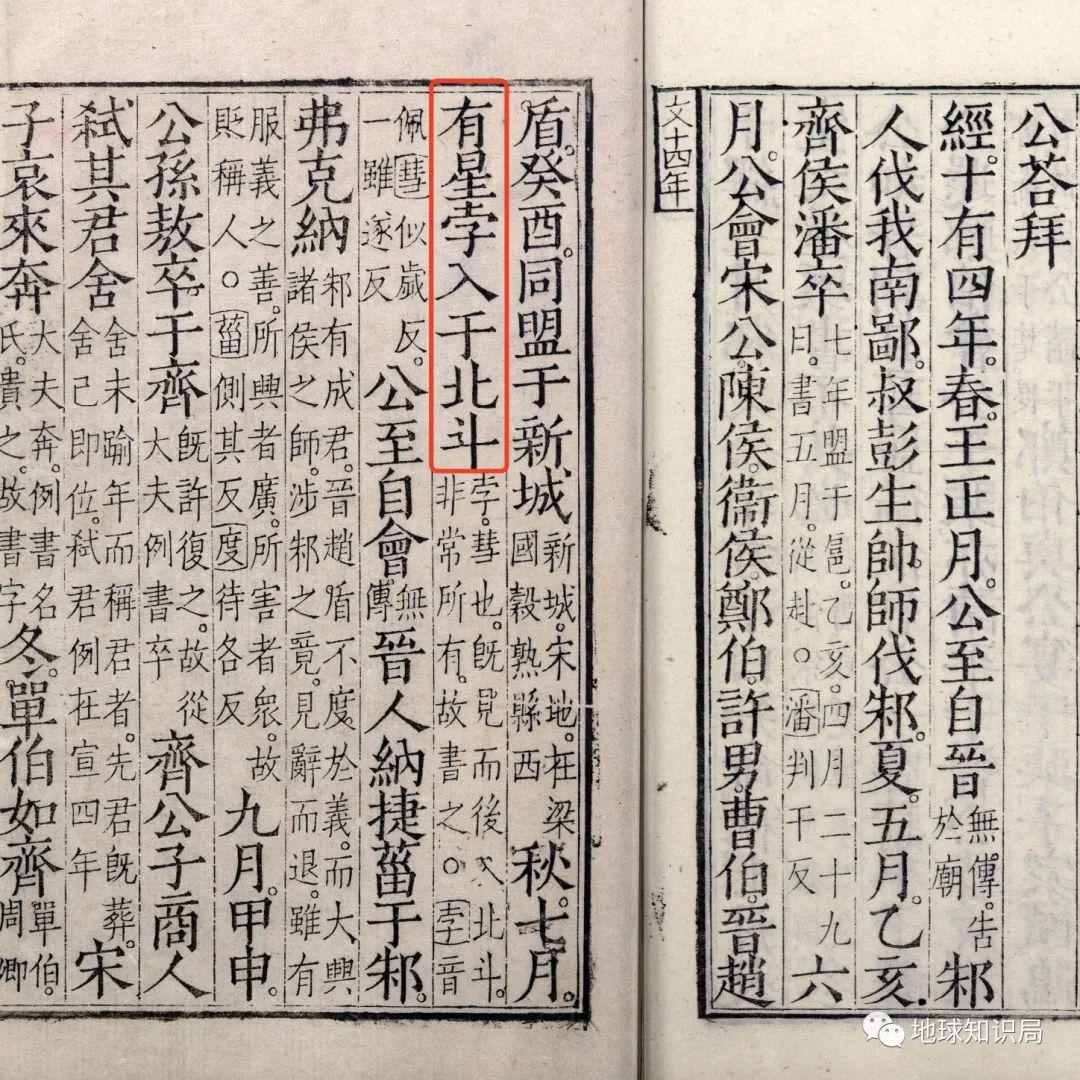 公荅拜
經。十有四年。春。王正月。公至自晉無傳。告於廟邾
人伐我南鄙。叔彭生帥師伐邾。夏。五月。乙亥。
齊侯潘卒七年盟于扈。乙亥。四月二十九日。書五月。從赴。○潘判干反六
月。公會宋公。陳侯。衞侯。鄭伯。許男。曹伯。晉趙
文十四年
盾。癸酉。同盟于新城新城。宋地。在梁國穀熟縣西秋。七月。
有星孛入于北斗孛。彗也。既見而後入北斗。非常所有。故書之。○孛音
佩彗似歲反。一雖遂反公至自會。無傳晉人納捷菑于邾。
弗克納邾有成君。晉趙盾不度於義。而大興諸侯之師。涉邾之竟。見辭而退。雖有
服義之善。所興者廣。所害者衆。故貶稱人。○菑側其反度待各反九月。甲申。
公孫敖卒。于齊既許復之。故從大夫例書卒齊公子商人
弒其君舍舍未踰年而稱君者。先君既葬。舍已即位。弒君例在宣四年宋
子哀來奔大夫奔。例書名氏。貴之。故書字冬。單伯如齊單伯。周卿
地球知识局